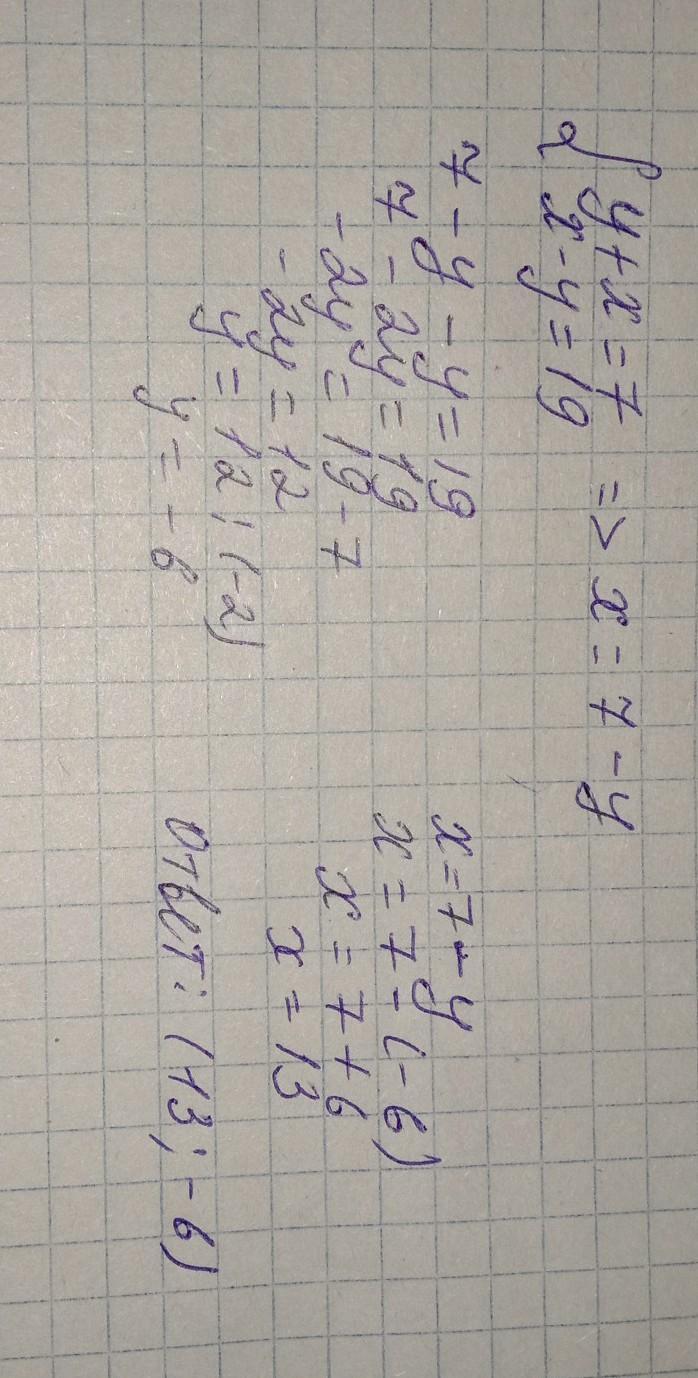 { y + x = 7 => x = 7 - y
x - y = 19
7 - y - y = 19
7 - 2y = 19
- 2y = 19 - 7
- 2y = 12
y = 12 : (-2)
y = - 6
x = 7 - y
x = 7 - (- 6)
x = 7 + 6
x = 13
Ответ: (13; - 6)